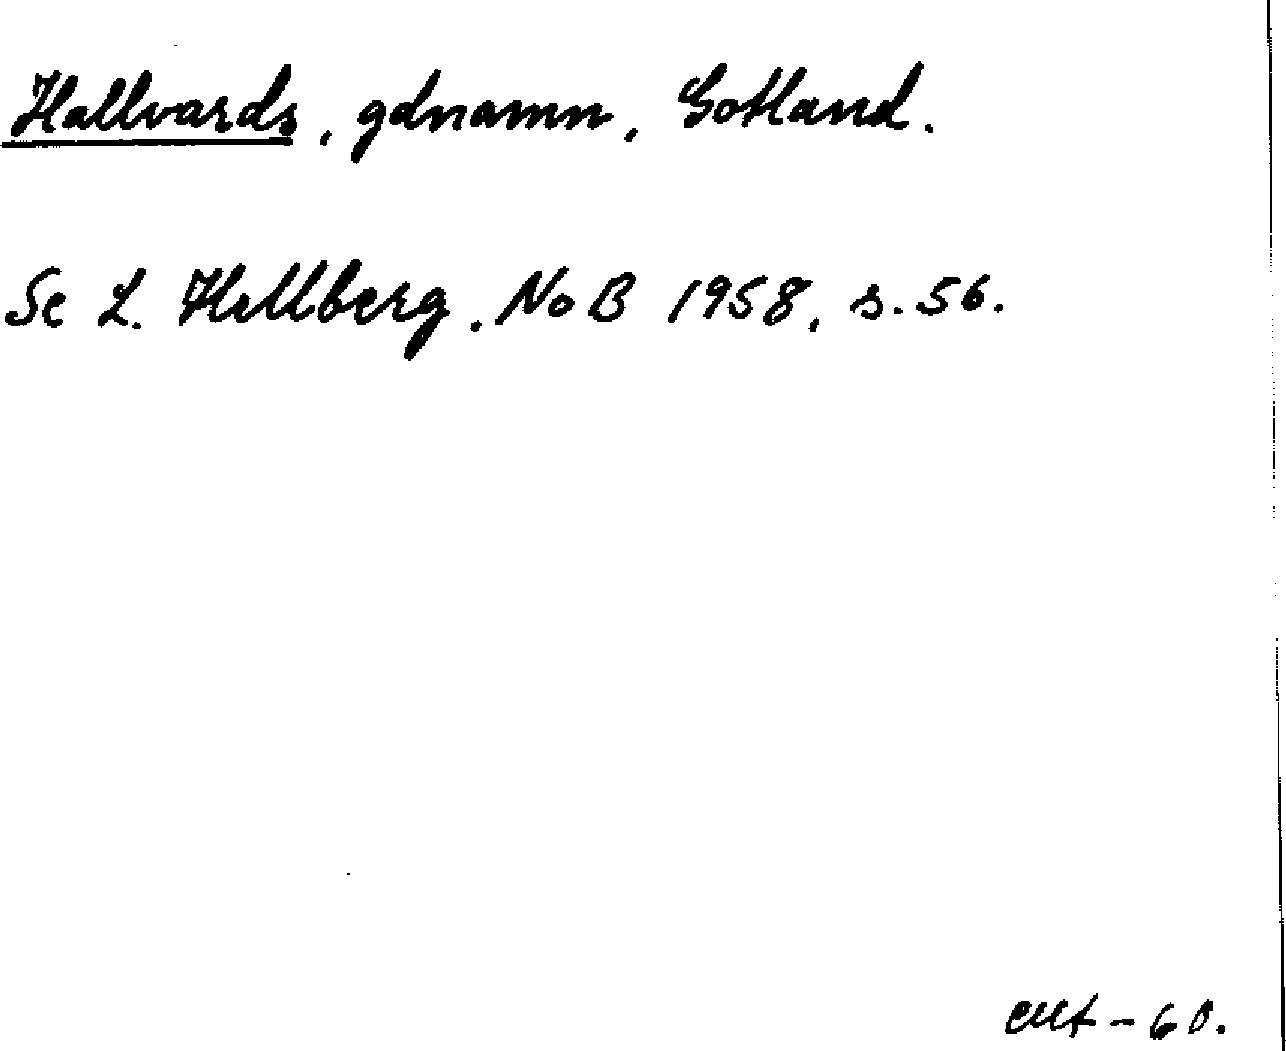 Hallvards, gdnamn, Gotland.
Se L. Hellberg, NoB 1958, s. 56.